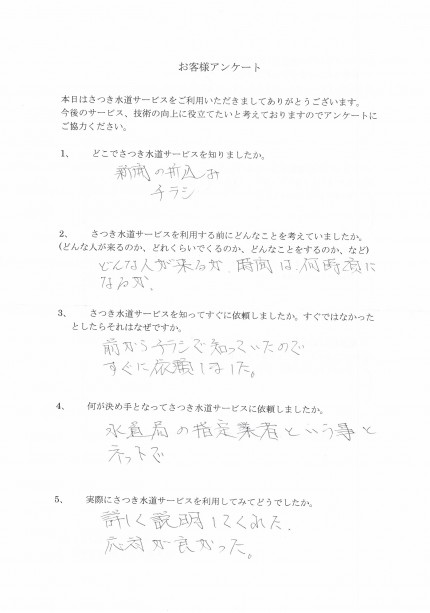 お客様アンケート
本日はさつき水道サービスをご利用いただきましてありがとうございます。
今後のサービス、技術の向上に役立てたいと考えておりますのでアンケートに
ご協力ください。
1、 どこでさつき水道サービスを知りましたか。
新聞の折込み
チラシ
2、 さつき水道サービスを利用する前にどんなことを考えていましたか。
(どんな人が来るのか、どれくらいでくるのか、どんなことをするのか、など)
どんな人が来るか、時間は、何時頃に
なるか。
3、 さつき水道サービスを知ってすぐに依頼しましたか。すぐではなかった
としたらそれはなぜですか。
前からチラシで知っていたので
すぐに依頼しました。
4、 何が決め手となってさつき水道サービスに依頼しましたか。
水道局の指定業者という事と
ネットで
5、 実際にさつき水道サービスを利用してみてどうでしたか。
詳しく説明してくれた、
応対が良かった。